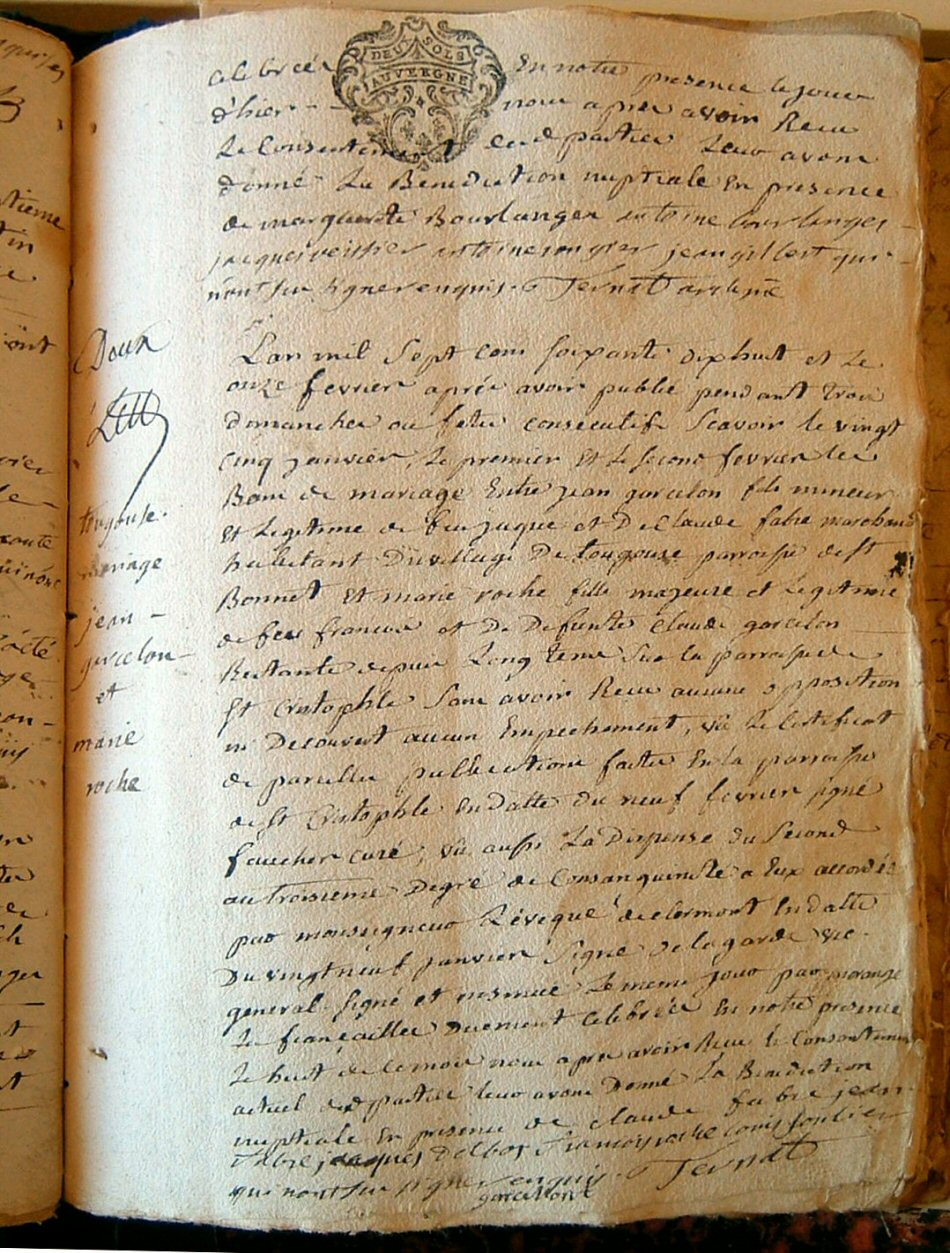 DEUX SOLS
AUVERGNE
celebréés En notre presence le jour
d'hier nous apres avoir Receu
Le Consentement desd parties Leur avons
donné La Benediction nuptiale En presence
de marguerite Bourlanger antoine bourlanger
jacques veissier antoine jean gilbert qui
n'ont sçu signer enquis. Ternat
Doux
Lan mil Sept Cens soixante dixhuit et Le
onze fevrier aprés avoir publié pendant trois
domanches ou fetes consecutifs Scavoir le vingt
cinq janvier, Le premier et Le second fevrier les
Bans de mariage Entre jean garcelon fils mineur
Et Legitime de feu jaque et De Claude fabre marchand
habitant Du village De tougouse parroisse de st
Bonnet et marie roche fille majeure et Legitime
de feu francois et De Defunte Claude garcelon
Restante depuis Long tems Sur la parroisse de
St Cristophle Sans avoir Receu aucune opposition
ni Decouvert aucun Empechement, vû Le Certificat
de pareilles publications faites En la parroisse
de St Cristophle En datte du neuf fevrier signé
faucher curé, vû aussi La Dispense du Second
au troisieme Degré de Consanguinité a Eux accordéé
par monseigneur L'évêque de clermont En datte
Du vingt neuf janvier Signé de la garde vic.
general. signé et insinuéé Le meme jour par
Les fiançailles Duement Celebréés En notre presence
Le huit de ce mois nous apres avoir Receu le Consentement
actuel desd parties leur avons Donné La Benediction
nuptiale En presence de claude fabre jean
fabre jacques dalbos francois roche Louis
qui n'ont sçu signer enquis. Ternat
garcellon
tougouse.
mariage
jean -
garcelon -
et
marie
roche